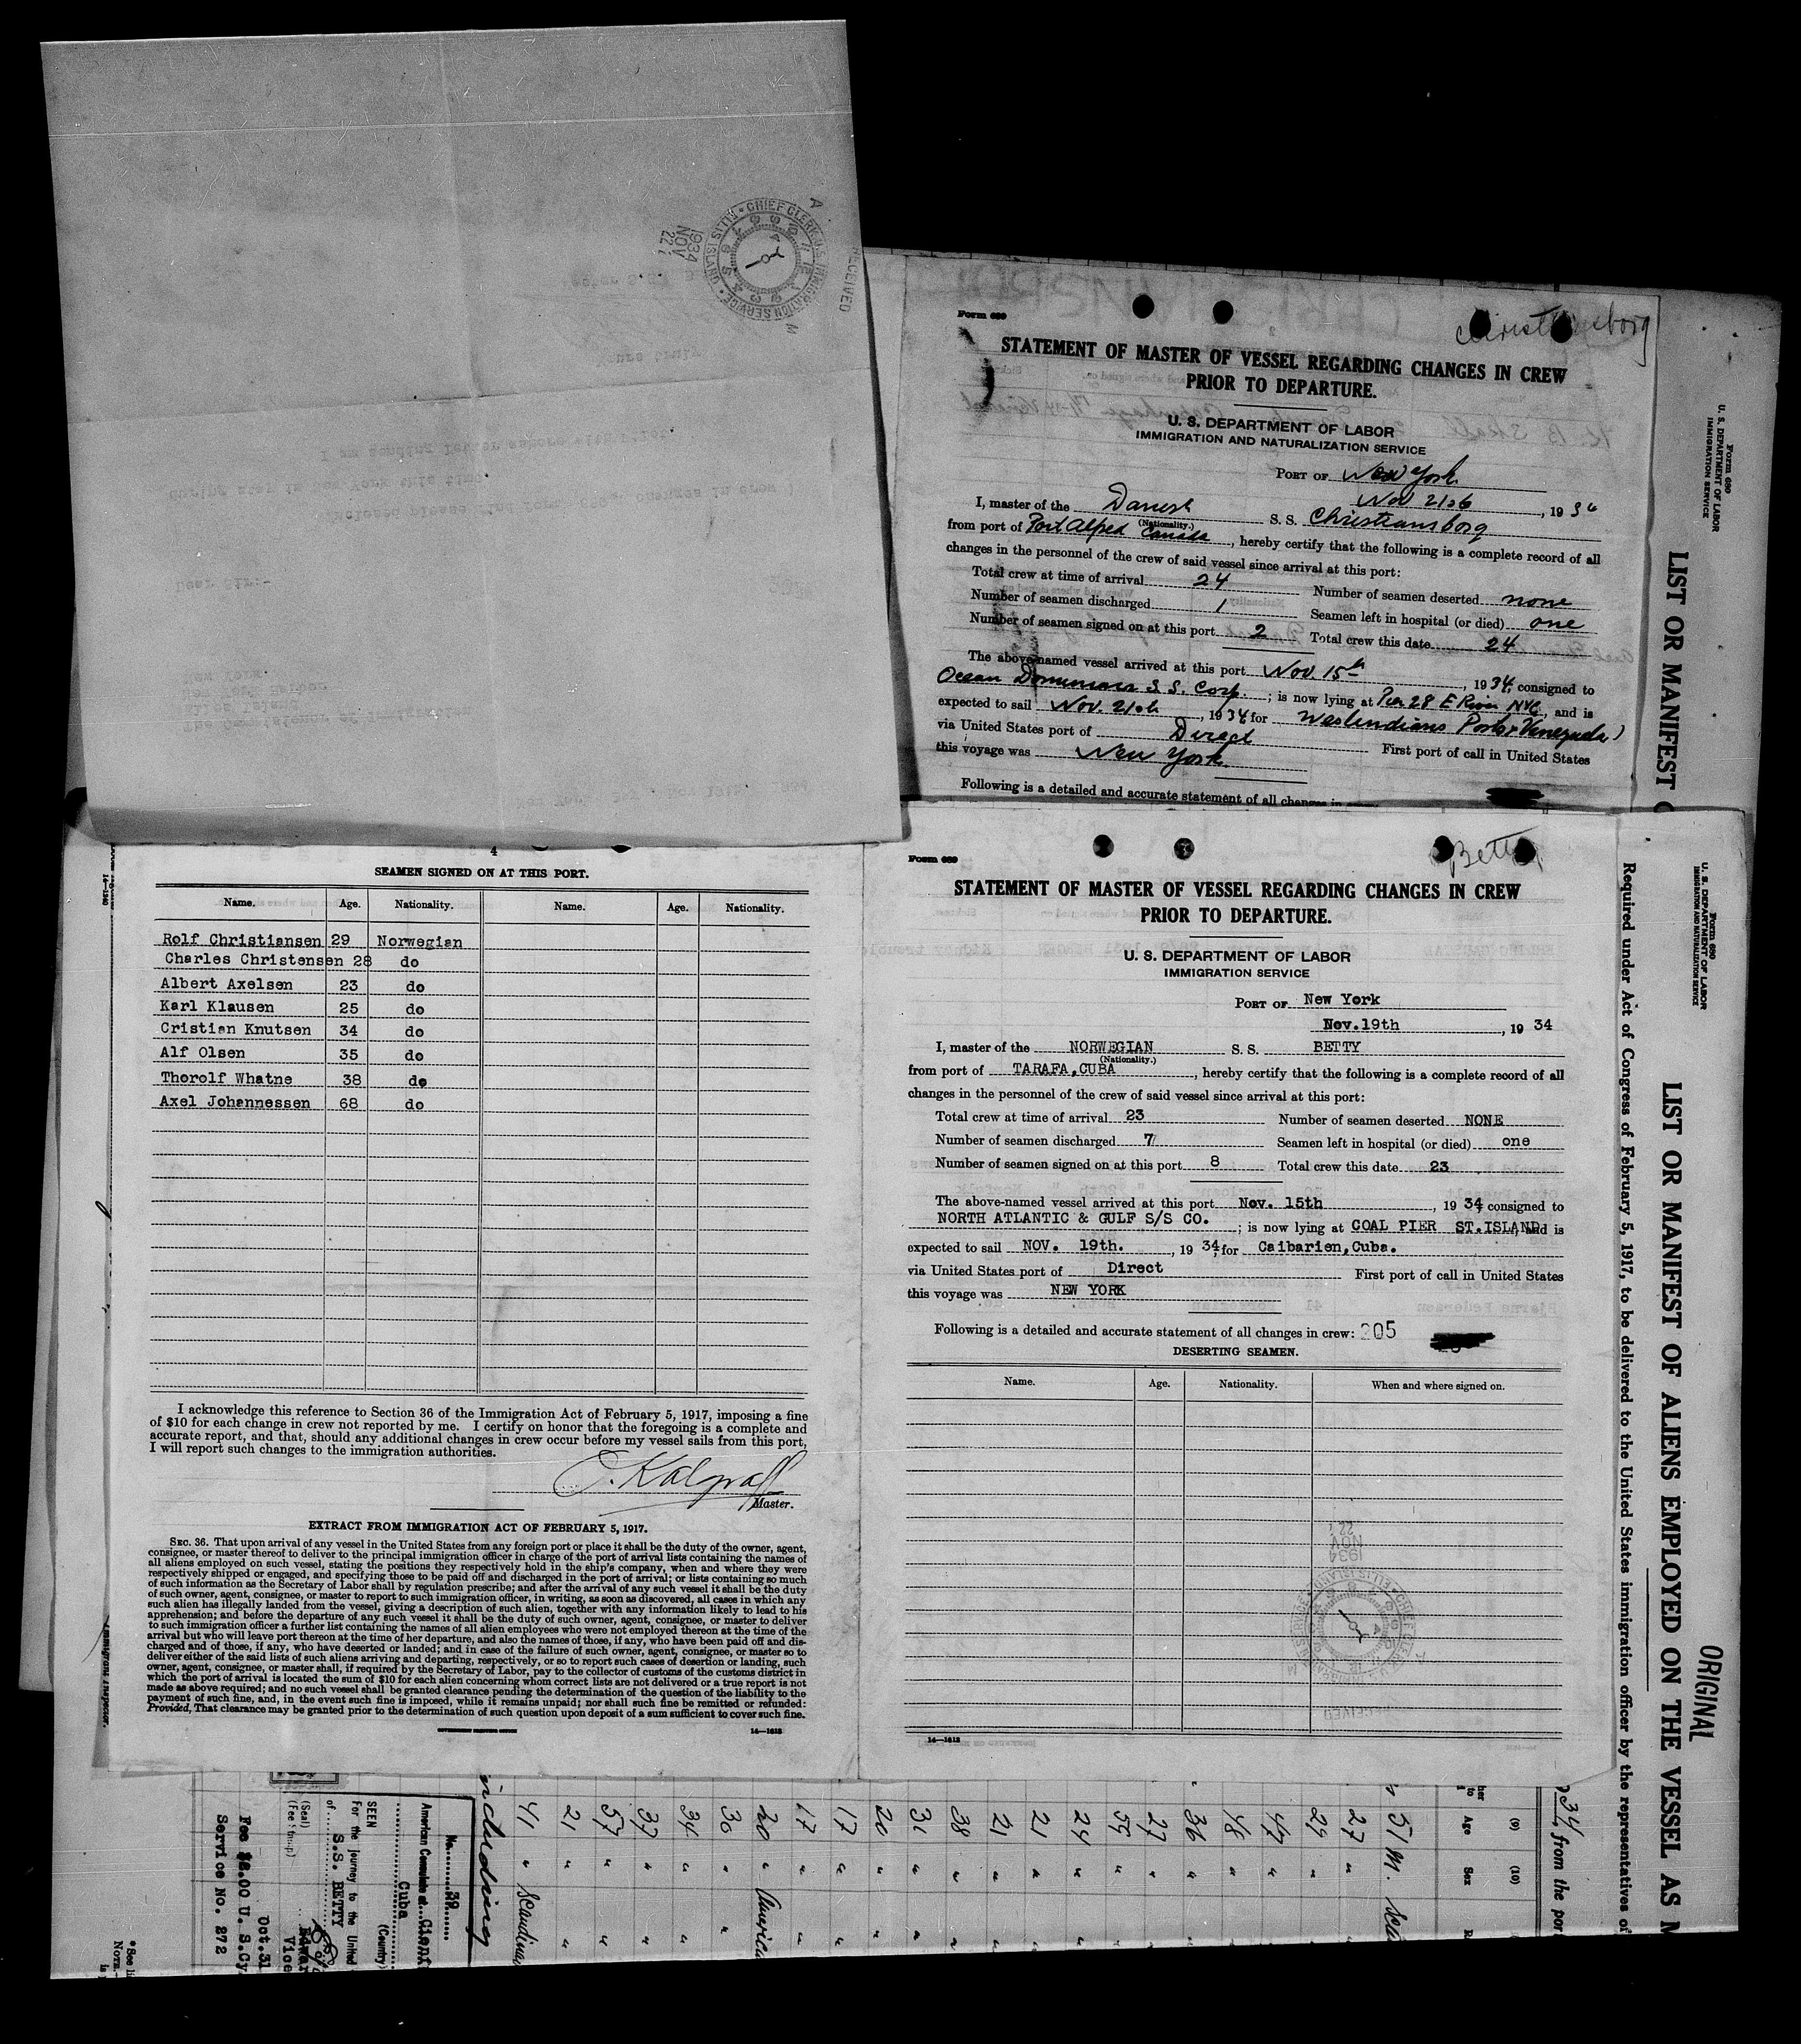 RECEIVED
CHIEF CLERK U.S. IMMIGRATION SERVICE ELLIS ISLAND
1934
NOV
22
Dear Sir:-
New York
Form 689
Christiansborg
STATEMENT OF MASTER OF VESSEL REGARDING CHANGES IN CREW
PRIOR TO DEPARTURE.
U. S. DEPARTMENT OF LABOR
IMMIGRATION AND NATURALIZATION SERVICE
PORT OF New York
Nov 21st, 1934
I, master of the Danish S. S. Christiansborg
(Nationality.)
from port of Port Alfred Canada, hereby certify that the following is a complete record of all
changes in the personnel of the crew of said vessel since arrival at this port:
Total crew at time of arrival 24 Number of seamen deserted none
Number of seamen discharged 1 Seamen left in hospital (or died) one
Number of seamen signed on at this port 2 Total crew this date 24
The above-named vessel arrived at this port Nov. 15th, 1934, consigned to
Ocean Dominion S. S. Corp.; is now lying at Pier 28 E River NYC, and is
expected to sail Nov. 21st, 1934 for Westindians Ports & Venezuela
via United States port of Direct First port of call in United States
this voyage was New York
Following is a detailed and accurate statement of all changes in
Form 689
U. S. DEPARTMENT OF LABOR
IMMIGRATION SERVICE
LIST OR MANIFEST O
4
SEAMEN SIGNED ON AT THIS PORT.
Name. Age. Nationality. Name. Age. Nationality.
Rolf Christiansen 29 Norwegian
Charles Christensen 28 do
Albert Axelsen 23 do
Karl Klausen 25 do
Cristian Knutsen 34 do
Alf Olsen 35 do
Thorolf Whatne 38 do
Axel Johannessen 68 do
I acknowledge this reference to Section 36 of the Immigration Act of February 5, 1917, imposing a fine
of $10 for each change in crew not reported by me. I certify on honor that the foregoing is a complete and
accurate report, and that, should any additional changes in crew occur before my vessel sails from this port,
I will report such changes to the immigration authorities.
Master.
EXTRACT FROM IMMIGRATION ACT OF FEBRUARY 5, 1917.
SEC. 36. That upon arrival of any vessel in the United States from any foreign port or place it shall be the duty of the owner, agent,
consignee, or master thereof to deliver to the principal immigration officer in charge of the port of arrival lists containing the names of
all aliens employed on such vessel, stating the positions they respectively hold in the ship's company, when and where they were
respectively shipped or engaged, and specifying those to be paid off and discharged in the port of arrival; or lists containing so much
of such information as the Secretary of Labor shall by regulation prescribe; and after the arrival of any such vessel it shall be the duty
of such owner, agent, consignee, or master to report to such immigration officer, in writing, as soon as discovered, all cases in which any
such alien has illegally landed from the vessel, giving a description of such alien, together with any information likely to lead to his
apprehension; and before the departure of any such vessel it shall be the duty of such owner, agent, consignee, or master to deliver
to such immigration officer a further list containing the names of all alien employees who were not employed thereon at the time of the
arrival but who will leave port thereon at the time of her departure, and also the names of those, if any, who have been paid off and dis-
charged and of those, if any, who have deserted or landed; and in case of the failure of such owner, agent, consignee, or master so to
deliver either of the said lists of such aliens arriving and departing, respectively, or so to report such cases of desertion or landing, such
owner, agent, consignee, or master shall, if required by the Secretary of Labor, pay to the collector of customs of the customs district in
which the port of arrival is located the sum of $10 for each alien concerning whom correct lists are not delivered or a true report is not
made as above required; and no such vessel shall be granted clearance pending the determination of the question of the liability to the
payment of such fine, and, in the event such fine is imposed, while it remains unpaid; nor shall such fine be remitted or refunded:
Provided, That clearance may be granted prior to the determination of such question upon deposit of a sum sufficient to cover such fine.
GOVERNMENT PRINTING OFFICE 14—1612
14—1240
Immigrant Inspector.
Form 689
Betty
STATEMENT OF MASTER OF VESSEL REGARDING CHANGES IN CREW
PRIOR TO DEPARTURE.
U. S. DEPARTMENT OF LABOR
IMMIGRATION SERVICE
PORT OF New York
Nov.19th, 1934
I, master of the NORWEGIAN S. S. BETTY
(Nationality.)
from port of TARAFA,CUBA, hereby certify that the following is a complete record of all
changes in the personnel of the crew of said vessel since arrival at this port:
Total crew at time of arrival 23 Number of seamen deserted NONE
Number of seamen discharged 7 Seamen left in hospital (or died) one
Number of seamen signed on at this port 8 Total crew this date 23
The above-named vessel arrived at this port Nov. 15th, 1934, consigned to
NORTH ATLANTIC & GULF S/S CO.; is now lying at COAL PIER ST.ISLAND, and is
expected to sail NOV. 19th., 1934, for Caibarien,Cuba.
via United States port of Direct First port of call in United States
this voyage was NEW YORK
Following is a detailed and accurate statement of all changes in crew: 205
DESERTING SEAMEN.
Name. Age. Nationality. When and where signed on.
1934
NOV
22
RECEIVED
14—1612
Form 689
U. S. DEPARTMENT OF LABOR
IMMIGRATION AND NATURALIZATION SERVICE
ORIGINAL
LIST OR MANIFEST OF ALIENS EMPLOYED ON THE VESSEL AS M
Required under Act of Congress of February 5, 1917, to be delivered to the United States immigration officer by the representatives of
34, from the por
(9) (10)
Age Sex R
51 M. Sca
27 "
29 "
47 "
48 "
36 "
27 "
55 "
24 "
21 "
21 "
38 "
31 "
20 "
17 "
17 "
20 " America
36 "
34 "
37 "
57 "
21 "
41 " Scandina
including
No. 39
American Consulate at Cienf
Cuba
(Country)
SEEN
For the journey to the United
of S.S. BETTY
(Seal)
(Fee Stamp)
Edwar
Vice
Oct.31
Fee $2.00 U. S.Cy.
Service No. 272
*See li
Norm.